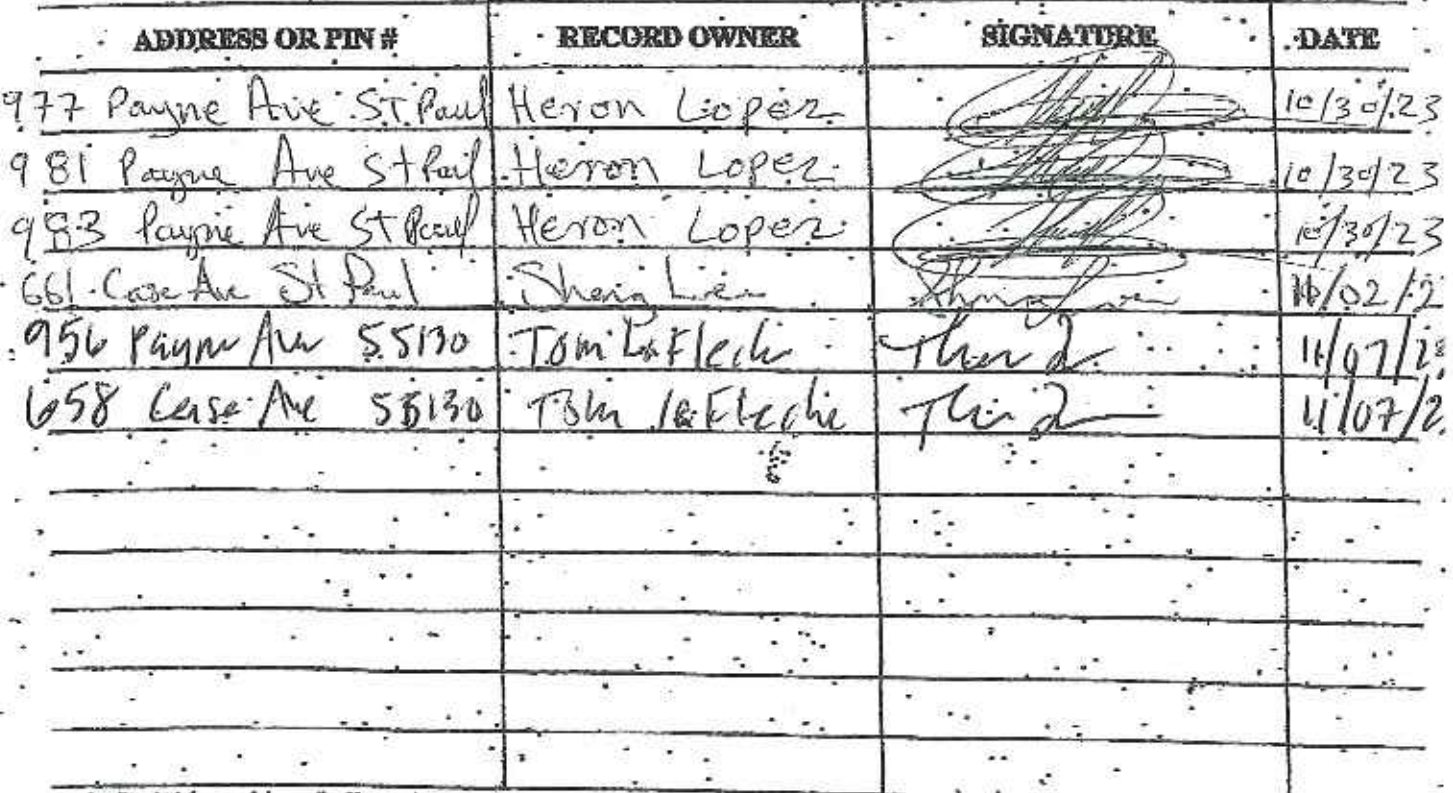 ADDRESS OR PIN # RECORD OWNER SIGNATURE DATE
977 Payne Ave St. Paul Heron Lopez 10/30/23
981 Payne Ave St Paul Heron Lopez 10/30/23
983 Payne Ave St Paul Heron Lopez 10/30/23
661 Case Ave St Paul Sheng 11/02/2
956 Payne Ave 55130 Tom LaFleche 11/07/2
658 Case Ave 55130 Tom LaFleche 11/07/2